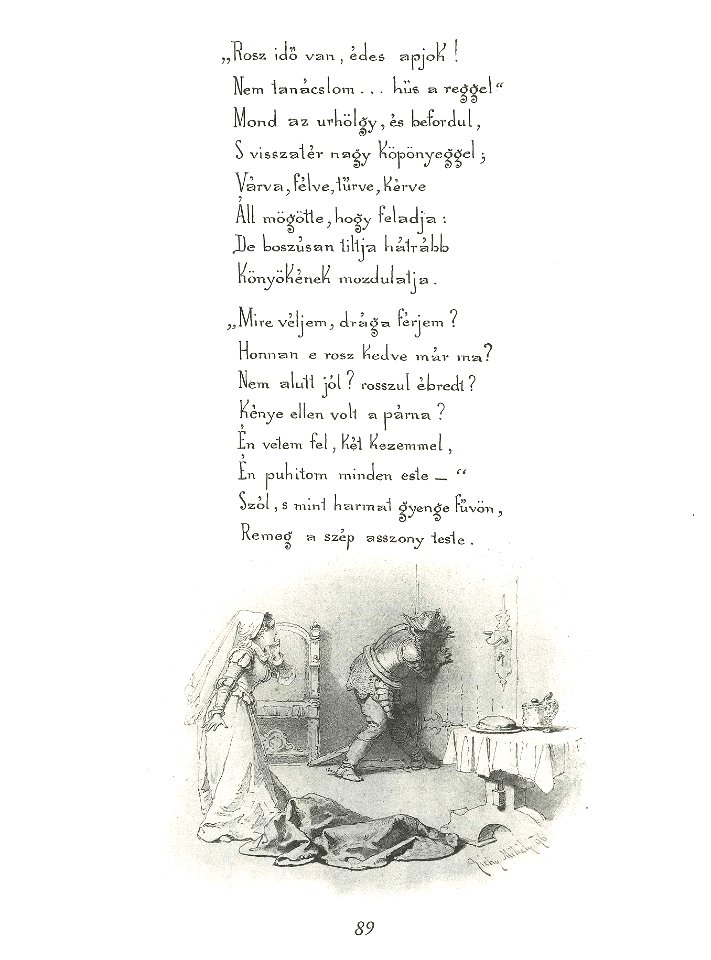 „Rosz idő van, édes apjok!
Nem tanácslom... hűs a reggel“
Mond az urhölgy, és befordul,
S visszatér nagy köpönyeggel;
Várva, félve, tűrve, kérve
Áll mögötte, hogy feladja:
De boszúsan tiltja hátrább
Könyökének mozdulatja.
„Mire véljem, drága férjem?
Honnan e rosz kedve már ma?
Nem alutt jól? rosszul ébredt?
Kénye ellen volt a párna?
Én vetem fel, két kezemmel,
Én puhitom minden este — “
Szól, s mint harmat gyenge fűvön,
Remeg a szép asszony teste.
Zichy Mihály
89